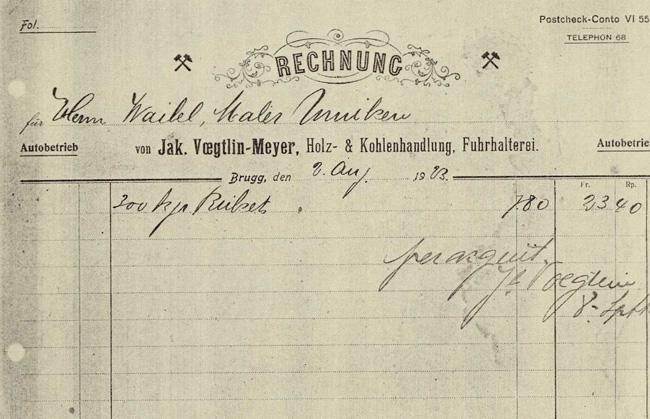 Fol.
Postcheck-Conto VI 55
TELEPHON 68
RECHNUNG
für Herrn Waibel, Maler Umiken
Autobetrieb von Jak. Vœgtlin-Meyer, Holz- & Kohlenhandlung, Fuhrhalterei. Autobetrie
Brugg, den 2. Aug. 1923.
Fr. Rp.
300 kgr. Brikets . 780 23 40
per acquit
Vœgtlin
8.